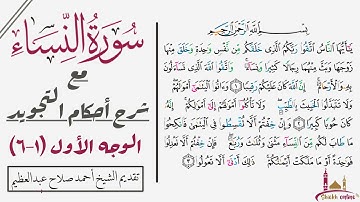 سورة النساء
مع
شرح أحكام التجويد
الوجه الأول (١-٦)
تقديم الشيخ أحمد صلاح عبدالعظيم
بِسْمِ اللَّهِ الرَّحْمَٰنِ الرَّحِيمِ
يَٰٓأَيُّهَا النَّاسُ اتَّقُوا رَبَّكُمُ الَّذِي خَلَقَكُم مِّن نَّفْسٍ وَٰحِدَةٍ وَخَلَقَ مِنْهَا
زَوْجَهَا وَبَثَّ مِنْهُمَا رِجَالًا كَثِيرًا وَنِسَآءً وَاتَّقُوا اللَّهَ الَّذِي تَسَآءَلُونَ
بِهِ وَالْأَرْحَامَ وَءَاتُوا الْيَتَٰمَىٰٓ أَمْوَٰلَهُمْ
وَلَا تَتَبَدَّلُوا الْخَبِيثَ بِالطَّيِّبِ وَلَا تَأْكُلُوٓا أَمْوَٰلَهُمْ إِلَىٰٓ أَمْوَٰلِكُمْ إِنَّهُ
كَانَ حُوبًا كَبِيرًا ٢ وَإِنْ خِفْتُمْ أَلَّا تُقْسِطُوا فِي الْيَتَٰمَىٰ فَانكِحُوا
مَا طَابَ لَكُم مِّنَ النِّسَآءِ مَثْنَىٰ وَثُلَٰثَ وَرُبَٰعَ فَإِنْ خِفْتُمْ أَلَّا تَعْدِلُوا
فَوَٰحِدَةً أَوْ مَا مَلَكَتْ أَيْمَٰنُكُمْ ذَٰلِكَ أَدْنَىٰٓ أَلَّا تَعُولُوا ٣
Sheikh online